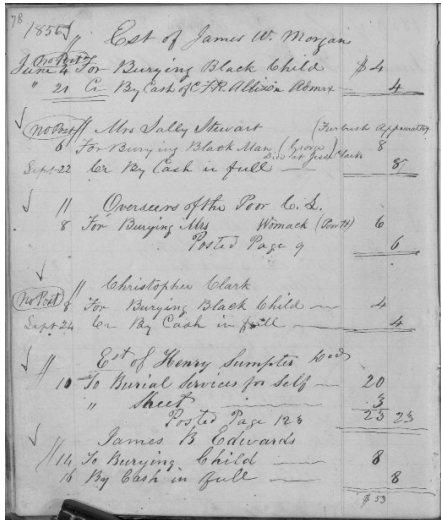 78
1856
" Est of James W. Morgan
(No Post)
June 4 For Burying Black Child $4
" 21 Cr By Cash of 4
(No Post) " Mrs Sally Stewart
6 For Burying Black Man (George) 8
Died at Clark
Sept 22 Cr By Cash in full 8
" Overseers of the Poor C. L.
8 For Burying Mrs Womack 6
Posted Page 9 6
(No Post) " Christopher Clark
8 For Burying Black Child 4
Sept 24 Cr By Cash in full 4
" Est of Henry Sumpter Decd
10 To Burial Services for Self 20
" Sheet 3
Posted Page 123 23 23
" James B Edwards
14 To Burying Child 8
By Cash in full 8
$53